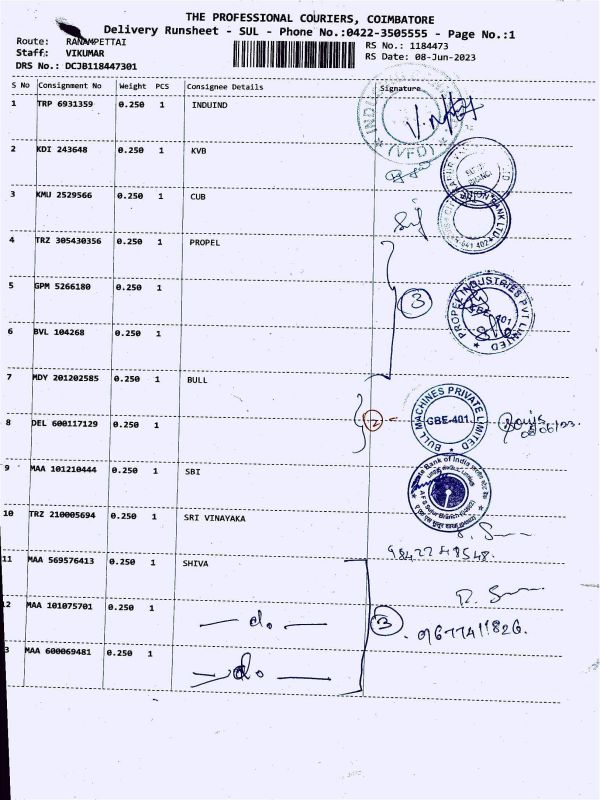 THE PROFESSIONAL COURIERS, COIMBATORE
Delivery Runsheet - SUL - Phone No.:0422-3505555 - Page No.:1
Route: RANAMPETTAI
Staff: VIKUMAR
DRS No.: DCJB118447301
RS No.: 1184473
RS Date: 08-Jun-2023
S No Consignment No Weight PCS Consignee Details Signature
1 TRP 6931359 0.250 1 INDUIND
(VFD)
2 KDI 243648 0.250 1 KVB
3 KMU 2529566 0.250 1 CUB
BANK LTD
641 402
4 TRZ 305430356 0.250 1 PROPEL
5 GPM 5266180 0.250 1
3
PROPEL INDUSTRIES PVT LIMITED
6 BVL 104268 0.250 1
7 MDY 201202585 0.250 1 BULL
8 DEL 600117129 0.250 1
2
BULL MACHINES PRIVATE LIMITED
CBE-401
9 MAA 101210444 0.250 1 SBI
State Bank of India
10 TRZ 210005694 0.250 1 SRI VINAYAKA
9842248548.
11 MAA 569576413 0.250 1 SHIVA
12 MAA 101075701 0.250 1 — do. —
3
9677411826.
3 MAA 600069481 0.250 1 — do. —